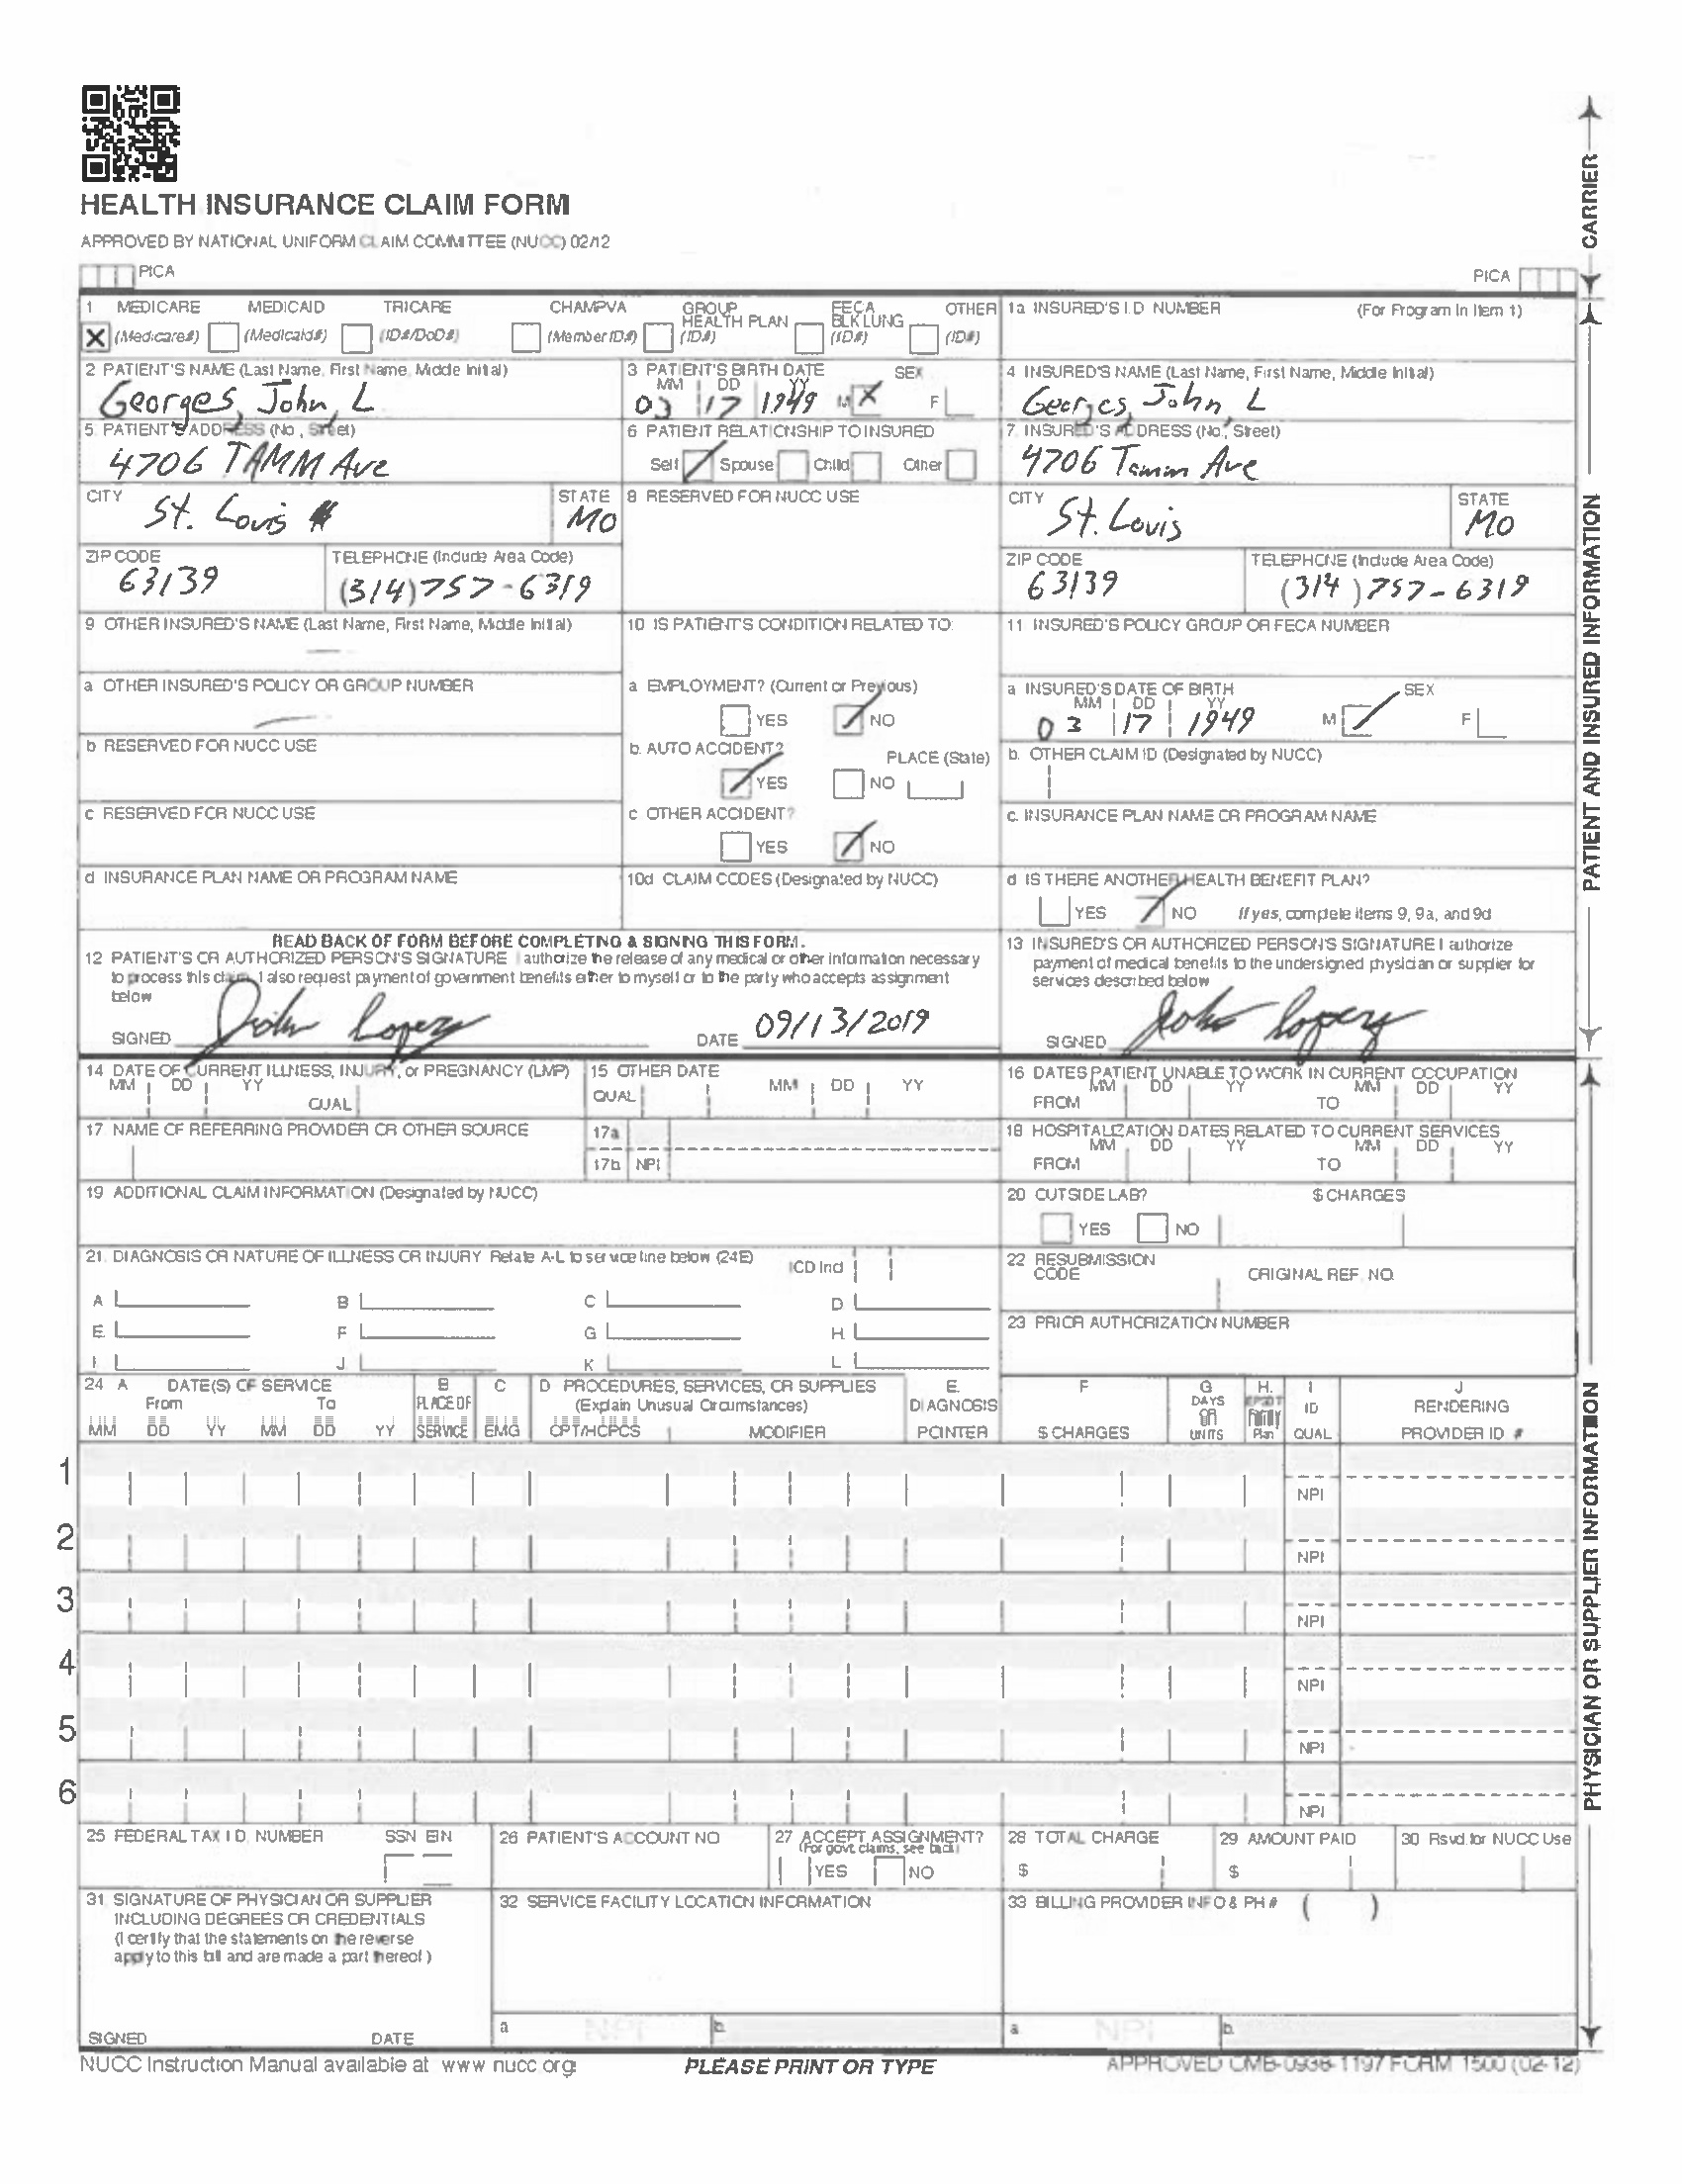 HEALTH INSURANCE CLAIM FORM
APPROVED BY NATIONAL UNIFORM CLAIM COMMITTEE (NUCC) 02/12
PICA
PICA
CARRIER
1 MEDICARE MEDICAID TRICARE CHAMPVA GROUP HEALTH PLAN FECA BLK LUNG OTHER
X (Medicare#) (Medicaid#) (ID#/DoD#) (Member ID#) (ID#) (ID#) (ID#)
1a INSURED'S I.D NUMBER (For Program in Item 1)
2 PATIENT'S NAME (Last Name, First Name, Middle Initial)
Georges, John, L
3 PATIENT'S BIRTH DATE SEX
MM DD YY
03 17 1949 M X F
4 INSURED'S NAME (Last Name, First Name, Middle Initial)
Georges, John, L
5. PATIENT'S ADDRESS (No, Street)
4706 TAMM Ave
6 PATIENT RELATIONSHIP TO INSURED
Self Spouse Child Other
7. INSURED'S ADDRESS (No., Street)
4706 Tamm Ave
CITY
St. Louis
STATE
MO
8 RESERVED FOR NUCC USE
CITY
St. Louis
STATE
MO
ZIP CODE
63139
TELEPHONE (Include Area Code)
(314) 757-6319
ZIP CODE
63139
TELEPHONE (Include Area Code)
(314) 757-6319
9 OTHER INSURED'S NAME (Last Name, First Name, Middle Initial)
10 IS PATIENT'S CONDITION RELATED TO:
11 INSURED'S POLICY GROUP OR FECA NUMBER
a OTHER INSURED'S POLICY OR GROUP NUMBER
a EMPLOYMENT? (Current or Previous)
YES NO
a INSURED'S DATE OF BIRTH SEX
MM DD YY
03 17 1949 M F
b RESERVED FOR NUCC USE
b. AUTO ACCIDENT? PLACE (State)
YES NO
b. OTHER CLAIM ID (Designated by NUCC)
c RESERVED FOR NUCC USE
c OTHER ACCIDENT?
YES NO
c. INSURANCE PLAN NAME OR PROGRAM NAME
d INSURANCE PLAN NAME OR PROGRAM NAME
10d CLAIM CODES (Designated by NUCC)
d IS THERE ANOTHER HEALTH BENEFIT PLAN?
YES NO If yes, complete items 9, 9a, and 9d
READ BACK OF FORM BEFORE COMPLETING & SIGNING THIS FORM.
12 PATIENT'S OR AUTHORIZED PERSON'S SIGNATURE I authorize the release of any medical or other information necessary
to process this claim. I also request payment of government benefits either to myself or to the party who accepts assignment
below
SIGNED John Lopez DATE 09/13/2019
13 INSURED'S OR AUTHORIZED PERSON'S SIGNATURE I authorize
payment of medical benefits to the undersigned physician or supplier for
services described below
SIGNED John Lopez
PATIENT AND INSURED INFORMATION
14 DATE OF CURRENT ILLNESS, INJURY, or PREGNANCY (LMP)
MM DD YY QUAL
15 OTHER DATE
QUAL MM DD YY
16 DATES PATIENT UNABLE TO WORK IN CURRENT OCCUPATION
MM DD YY MM DD YY
FROM TO
17 NAME OF REFERRING PROVIDER OR OTHER SOURCE
17a
17b NPI
18 HOSPITALIZATION DATES RELATED TO CURRENT SERVICES
MM DD YY MM DD YY
FROM TO
19 ADDITIONAL CLAIM INFORMATION (Designated by NUCC)
20 OUTSIDE LAB? $ CHARGES
YES NO
21. DIAGNOSIS OR NATURE OF ILLNESS OR INJURY Relate A-L to service line below (24E) ICD Ind
A B C D
E F G H
I J K L
22 RESUBMISSION CODE ORIGINAL REF. NO.
23 PRIOR AUTHORIZATION NUMBER
24 A DATE(S) OF SERVICE B C D PROCEDURES, SERVICES, OR SUPPLIES E. F G H. I J
From To PLACE OF (Explain Unusual Circumstances) DIAGNOSIS DAYS OR EPSDT Family ID RENDERING
MM DD YY MM DD YY SERVICE EMG CPT/HCPCS MODIFIER POINTER $ CHARGES UNITS Plan QUAL PROVIDER ID #
1
NPI
2
NPI
3
NPI
4
NPI
5
NPI
6
NPI
25 FEDERAL TAX I D NUMBER SSN EIN
26 PATIENT'S ACCOUNT NO
27 ACCEPT ASSIGNMENT?
(For govt. claims, see back)
YES NO
28 TOTAL CHARGE
$
29 AMOUNT PAID
$
30 Rsvd for NUCC Use
31 SIGNATURE OF PHYSICIAN OR SUPPLIER
INCLUDING DEGREES OR CREDENTIALS
(I certify that the statements on the reverse
apply to this bill and are made a part thereof)
SIGNED DATE
32 SERVICE FACILITY LOCATION INFORMATION
a NPI b
33 BILLING PROVIDER INFO & PH # ( )
a NPI b
PHYSICIAN OR SUPPLIER INFORMATION
NUCC Instruction Manual available at www nucc org
PLEASE PRINT OR TYPE
APPROVED OMB-0938-1197 FORM 1500 (02-12)